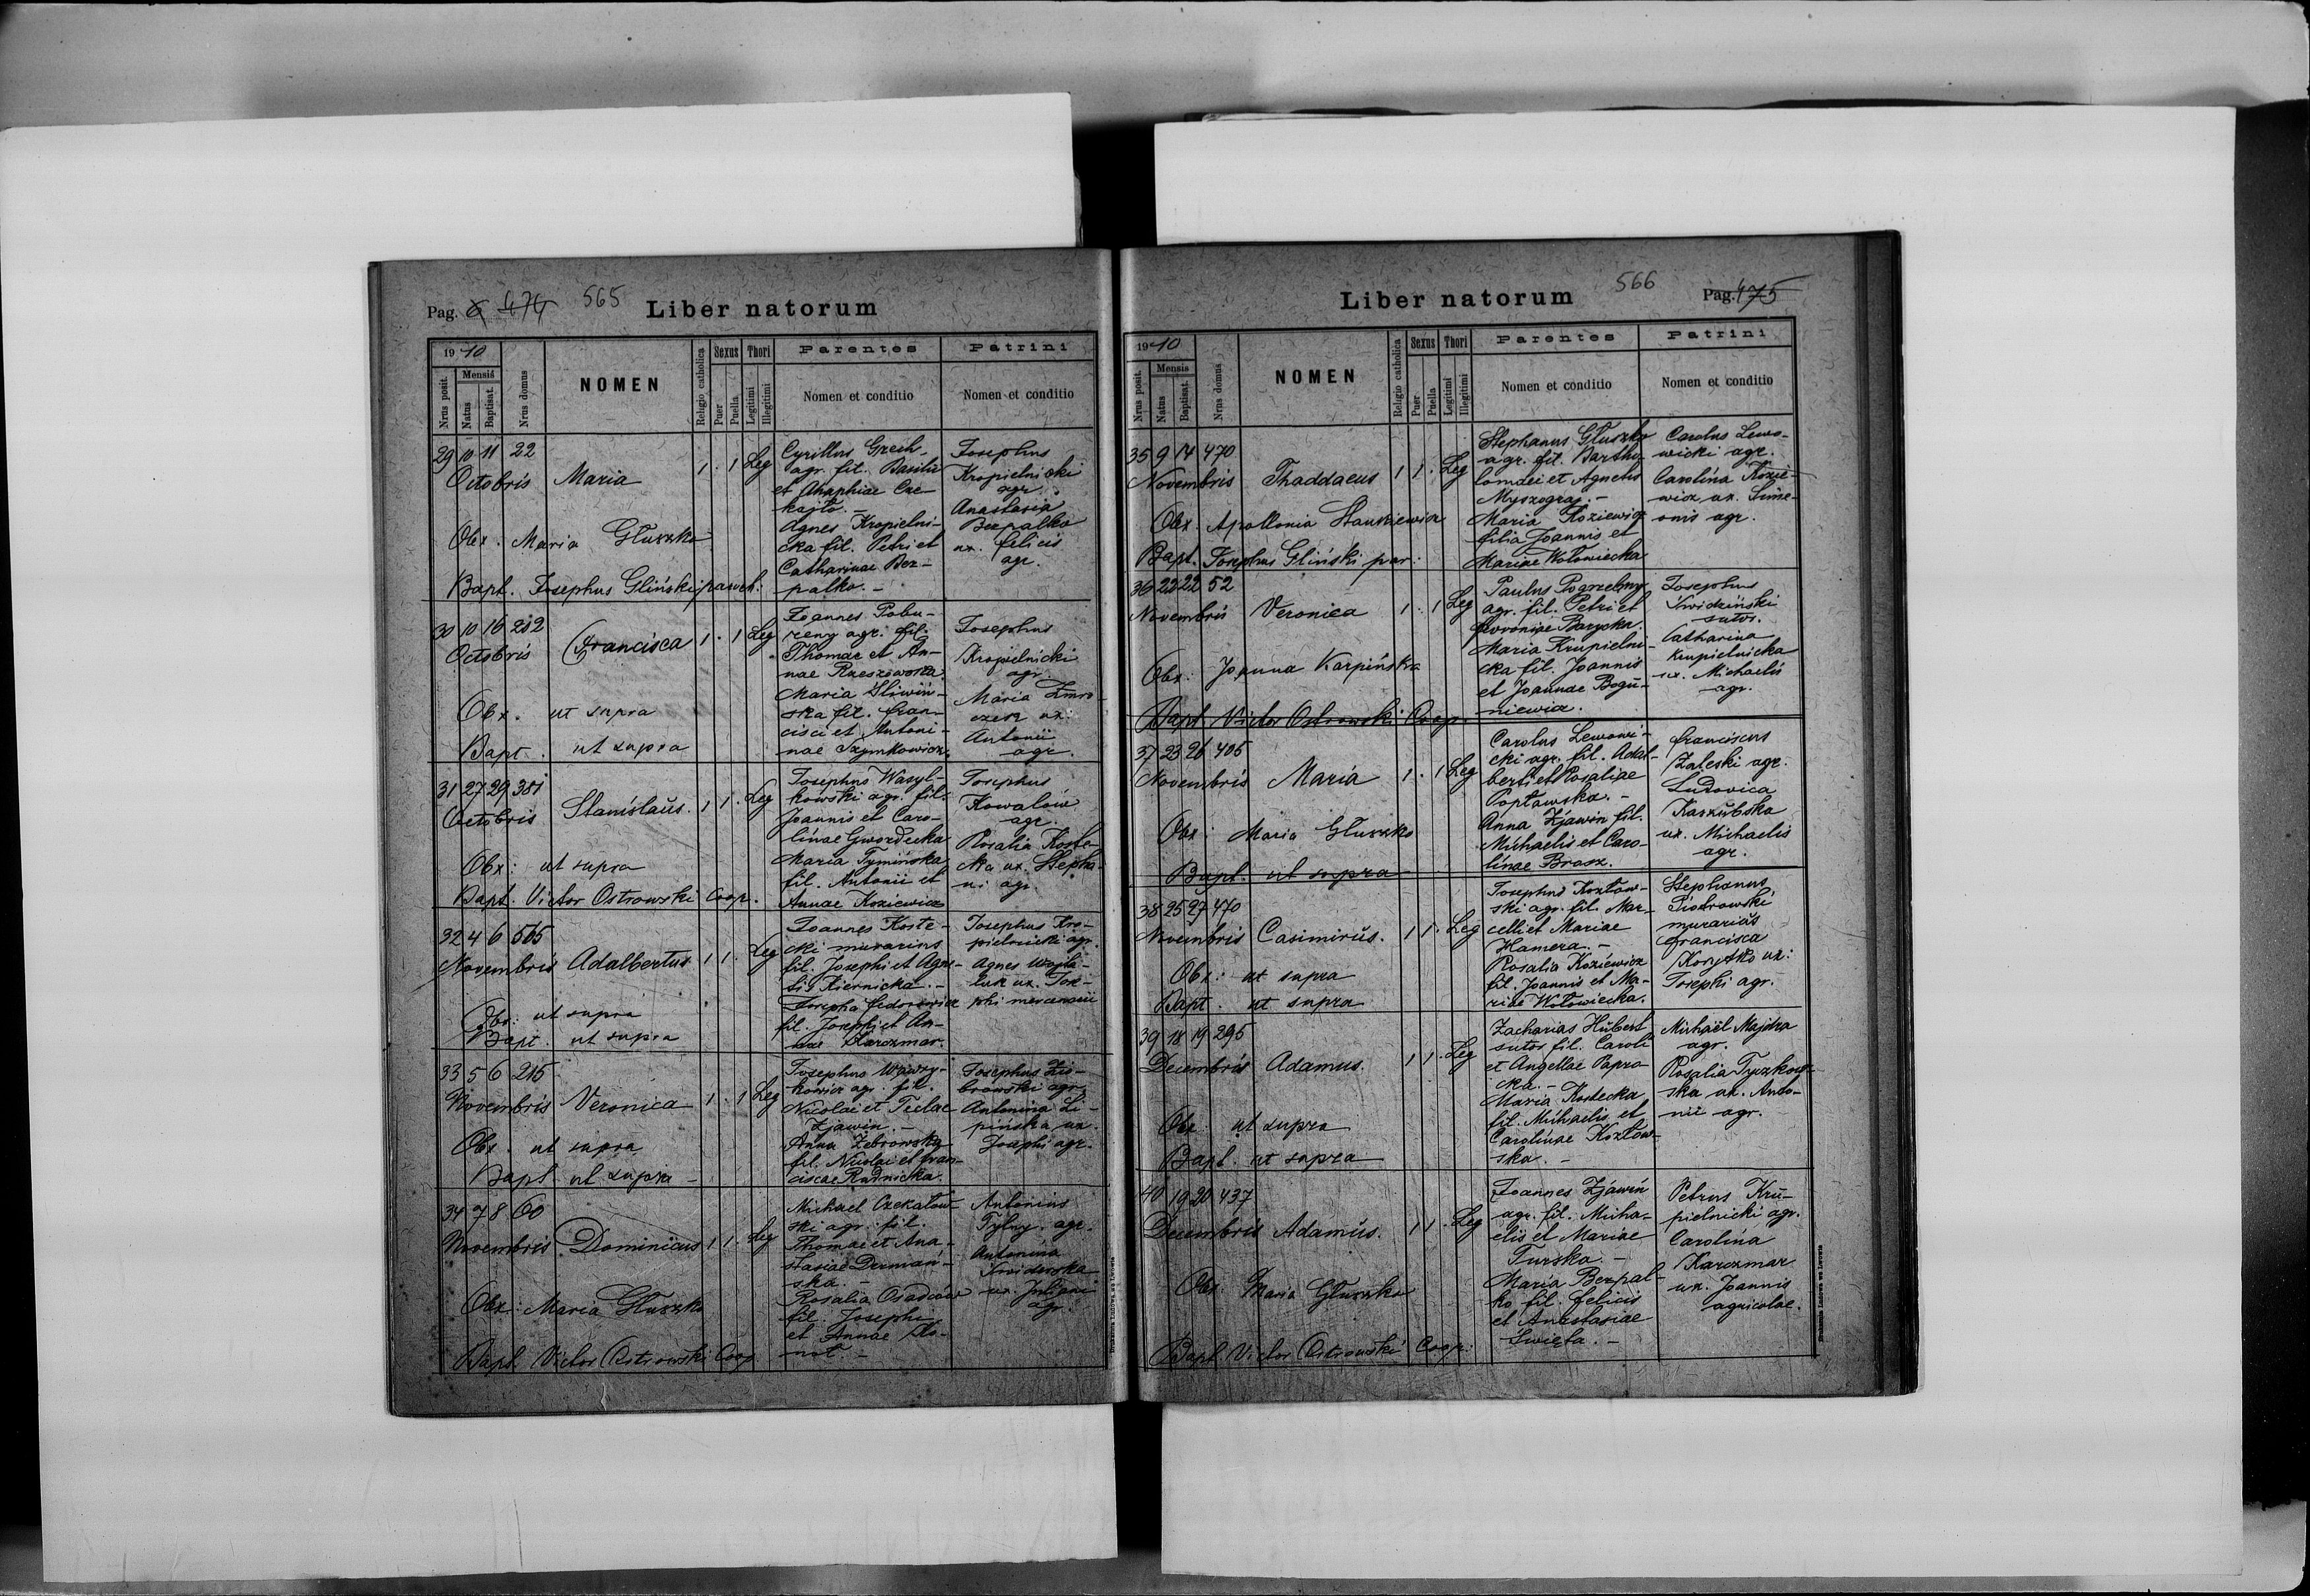 Pag. 6 474 565 Liber natorum
1910
Nrus posit.
Mensis
Natus
Baptisat.
Nrus domus
NOMEN
Religio catholica
Sexus
Puer
Puella
Thori
Legitimi
Illegitimi
Parentes
Nomen et conditio
Patrini
Nomen et conditio
29 10 11 22
Octobris Maria 1 . 1 Leg
Obx. Maria Głuszko
Bapt. Josephus Gliński paroch.
Cyrillus Grech
agr. fil. Basilii
et Ahaphiae Cze-
kajło. -
Agnes Kropielni-
cka fil. Petri et
Catharinae Bez-
palko. -
Josephus
Kropielnicki
agr.
Anastasia
Bezpalko
ux. Felicis
agr.
30 10 16 202
Octobris Francisca 1 . 1 Leg
Obx. ut supra
Bapt. ut supra
Joannes Pobu-
reny agr. fil.
Thomae et An-
nae Rzeszowska.
Maria Śliwiń-
ska fil. Fran-
cisci et Antoni-
nae Szymkowicz.
Josephus
Kropielnicki
agr.
Maria
ux.
Antonii
agr.
31 27 29 381
Octobris Stanislaus. 1 1 . Leg
Obx: ut supra
Bapt. Victor Ostrowski Coop.
Josephus Wasyl-
kowski agr. fil.
Joannis et Caro-
linae Gwozdecka
Maria Tymińska
fil. Antonii et
Annae Koziewicz
Josephus
Kowalów
agr.
Rosalia Koste-
cka ux. Stepha-
ni agr.
32 4 6 505
Novembris Adalbertus 1 1 . Leg
Obx: ut supra
Bapt. ut supra
Joannes Koste-
cki murarius
fil. Josephi et Agne-
tis Kiernicka. -
Josepha Fedorowicz
fil. Josephi et An-
nae Karczmar.
Josephus Kro-
pielnicki agr.
Agnes Wojta-
luk ux. Jose-
phi mercenarii
33 5 6 215
Novembris Veronica 1 . 1 Leg
Obx. ut supra
Bapt. ut supra
Josephus Wawry-
kowicz agr. fil.
Nicolai et Teclae
Zjawin. -
Anna Żebrowska
fil. Nicolai et Fran-
ciscae Rudnicka.
Josephus Zie-
browski agr.
Antonina Li-
pińska ux.
Josephi agr.
34 7 8 60
Novembris Dominicus 1 1 . Leg
Obx: Maria Głuszko
Bapt. Victor Ostrowski Coop
Michael Czekałow-
ski agr. fil.
Thomae et Ana-
stasiae Dermań-
ska. -
Rosalia Osadców
fil. Josephi
et Annae
Antonius
Tylny. agr.
Antonina
Świderska
ux. Juliani
agr.
Drukarnia Ludowa we Lwowie
Liber natorum 566 Pag. 475
1910
Nrus posit.
Mensis
Natus
Baptisat.
Nrus domus
NOMEN
Religio catholica
Sexus
Puer
Puella
Thori
Legitimi
Illegitimi
Parentes
Nomen et conditio
Patrini
Nomen et conditio
35 9 14 470
Novembris Thaddaeus 1 1 . Leg
Obx. Apollonia Stankiewicz
Bapt. Josephus Gliński par:
Stephanus Głuszko
agr. fil. Bartho-
lomaei et Agnetis
Myszograj. -
Maria Koziewicz
filia Joannis et
Mariae Wołowiecka
Carolus Lewo-
wicki agr.
Carolina Kozie-
wicz ux. Sime-
onis agr.
36 22 22 52
Novembris Veronica 1 . 1 Leg
Obx: Joanna Karpińska
Bapt. Victor Ostrowski Coop.
Paulus Pogrzebny
agr. fil. Petri et
Fevroniae Barycka.
Maria Krupielni-
cka fil. Joannis
et Joannae Bogu-
niewicz.
Josephus
Świdziński
sutor.
Catharina
Krupielnicka
ux. Michaelis
agr.
37 23 26 405
Novembris Maria 1 . 1 Leg
Obx: Maria Głuszko
Bapt. ut supra
Carolus Lewowi-
cki agr. fil. Adal-
berti et Rosaliae
Popławska. -
Anna Zjawin fil.
Michaelis et Caro-
linae Brasz.
Franciscus
Zaleski agr.
Ludovica
Kaszubska
ux. Michaelis
agr.
38 25 27 470
Novembris Casimirus. 1 1 . Leg
Obx: ut supra
Bapt. ut supra
Josephus Kozłow-
ski agr. fil. Mar-
celli et Mariae
Hamera. -
Rosalia Koziewicz
fil. Joannis et Ma-
riae Wołowiecka.
Stephanus
Piotrowski
murarius
Francisca
Korytko ux:
Josephi agr.
39 18 19 295
Decembris Adamus. 1 1 . Leg
Obx: ut supra
Bapt. ut supra
Zacharias Hubert
sutor fil. Caroli
et Angellae Papro-
cka. -
Maria Kostecka
fil. Michaelis et
Carolinae Kozłow-
ska. -
Michaël Majdra
agr.
Rosalia Tyczkow-
ska ux. Anto-
nii agr.
40 19 20 437
Decembris Adamus. 1 1 . Leg
Obx. Maria Głuszko
Bapt. Victor Ostrowski Coop:
Joannes Zjawin
agr. fil. Micha-
elis et Mariae
Turska. -
Maria Bezpal-
ko fil. Felicis
et Anastasiae
Święta. -
Petrus Kru-
pielnicki agr.
Carolina
Karczmar
ux. Joannis
agricolae.
Drukarnia Ludowa we Lwowie